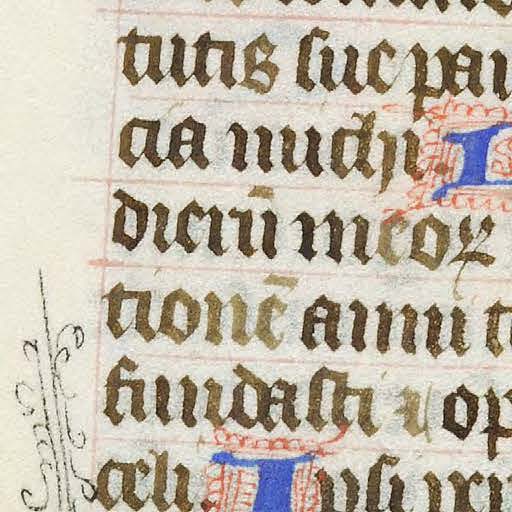 tutis sue pau
cia nuchi. I
dierū meoꝝ
tionē annu t
fundasti ⁊ op
celi. Ipsi peri